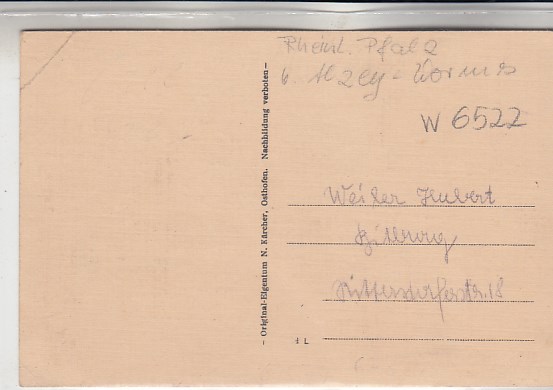 Rheinl. Pfalz
b. Alzey-Worms
W 6522
- Original-Eigentum N. Kärcher, Osthofen. Nachbildung verboten -
Weiler Hubert
Bitburg
Rittersdorferstr. 18
4 L